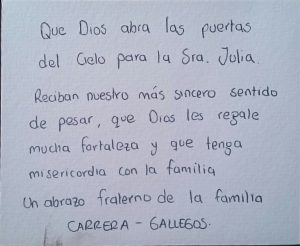 Que Dios abra las puertas
del Cielo para la Sra. Julia.
Reciban nuestro más sincero sentido
de pesar, que Dios les regale
mucha fortaleza y que tenga
misericordia con la familia
Un abrazo fraterno de la familia
CARRERA - GALLEGOS.